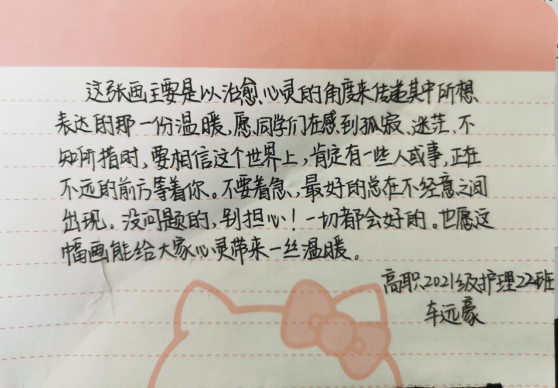 这张画主要是以治愈心灵的角度来传递其中所想
表达的那一份温暖,愿同学们在感到孤寂、迷茫、不
知所措时,要相信这个世界上,肯定有一些人或事,正在
不远的前方等着你。不要着急,最好的总在不经意之间
出现。没问题的,别担心!一切都会好的。也愿这
幅画能给大家心灵带来一丝温暖。
高职2021级护理22班
车远豪